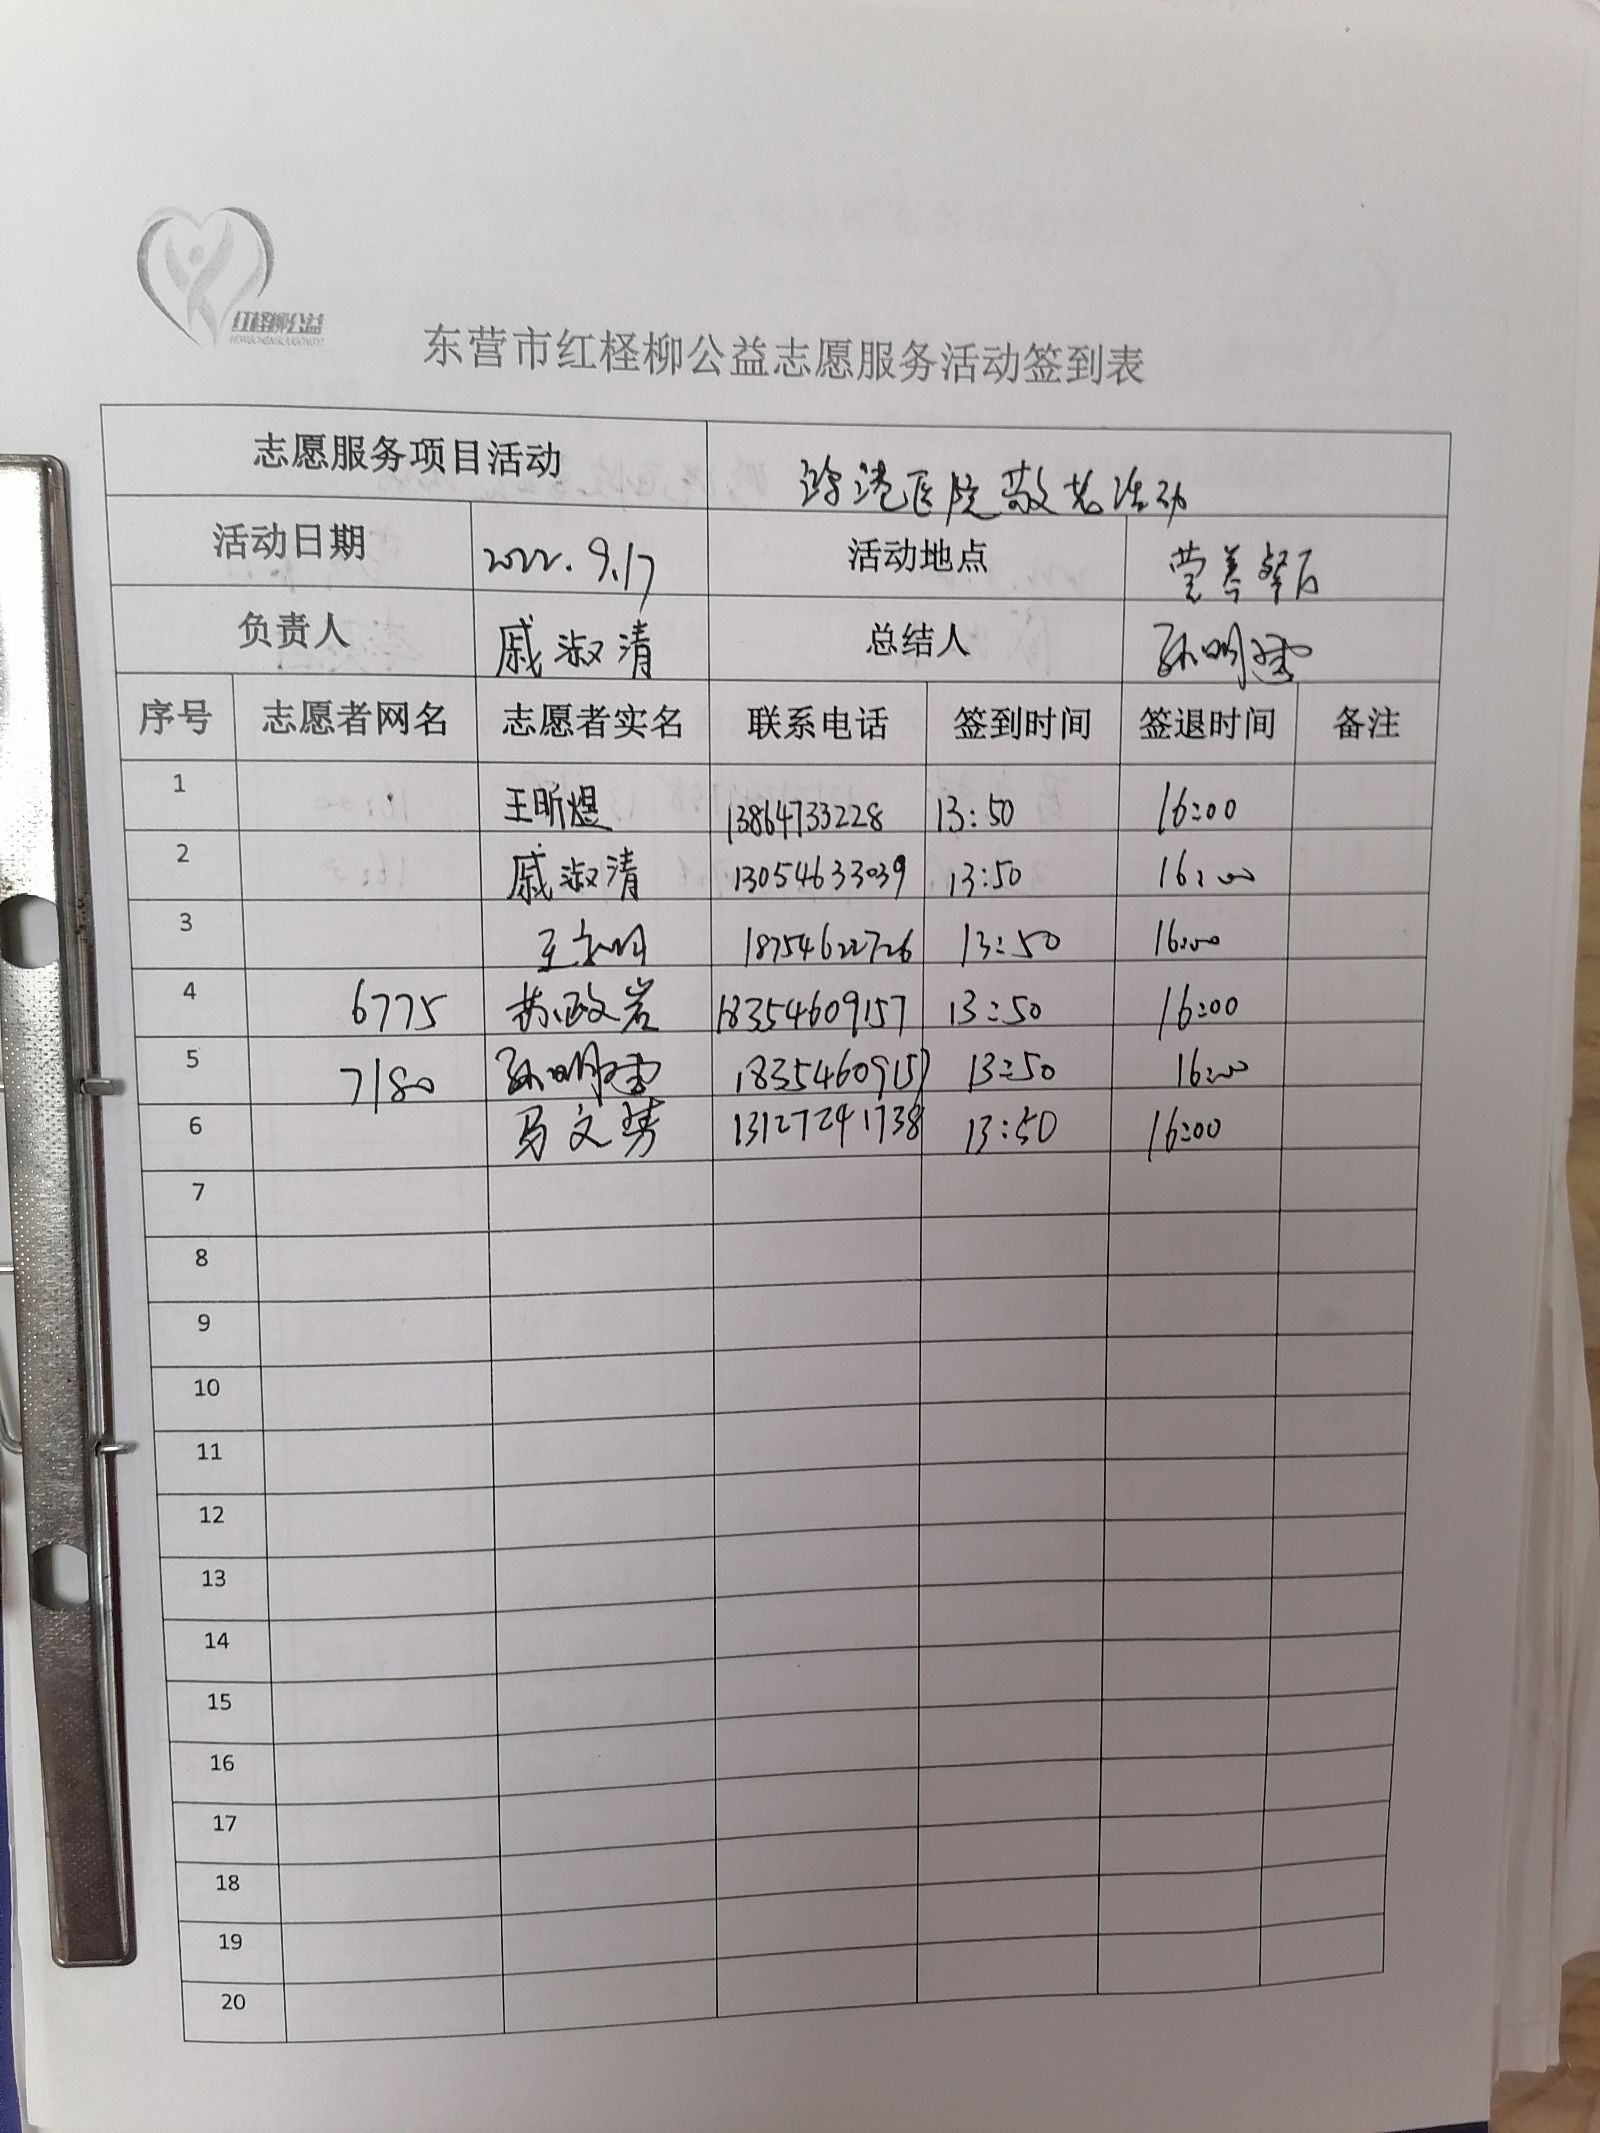 红柽柳公益
HONGCHENGLIUGONGYI
东营市红柽柳公益志愿服务活动签到表
志愿服务项目活动 鸿港医院敬老活动
活动日期 2022.9.17 活动地点 营养餐厅
负责人 戚淑清 总结人 孙明
序号 志愿者网名 志愿者实名 联系电话 签到时间 签退时间 备注
1 王昕煜 13864733228 13:50 16:00
2 戚淑清 13054633039 13:50 16:00
3 王 18754622726 13:50 16:00
4 6775 苏政岩 18354609157 13:50 16:00
5 7180 孙明 18354609157 13:50 16:00
6 马文 13127241738 13:50 16:00
7
8
9
10
11
12
13
14
15
16
17
18
19
20